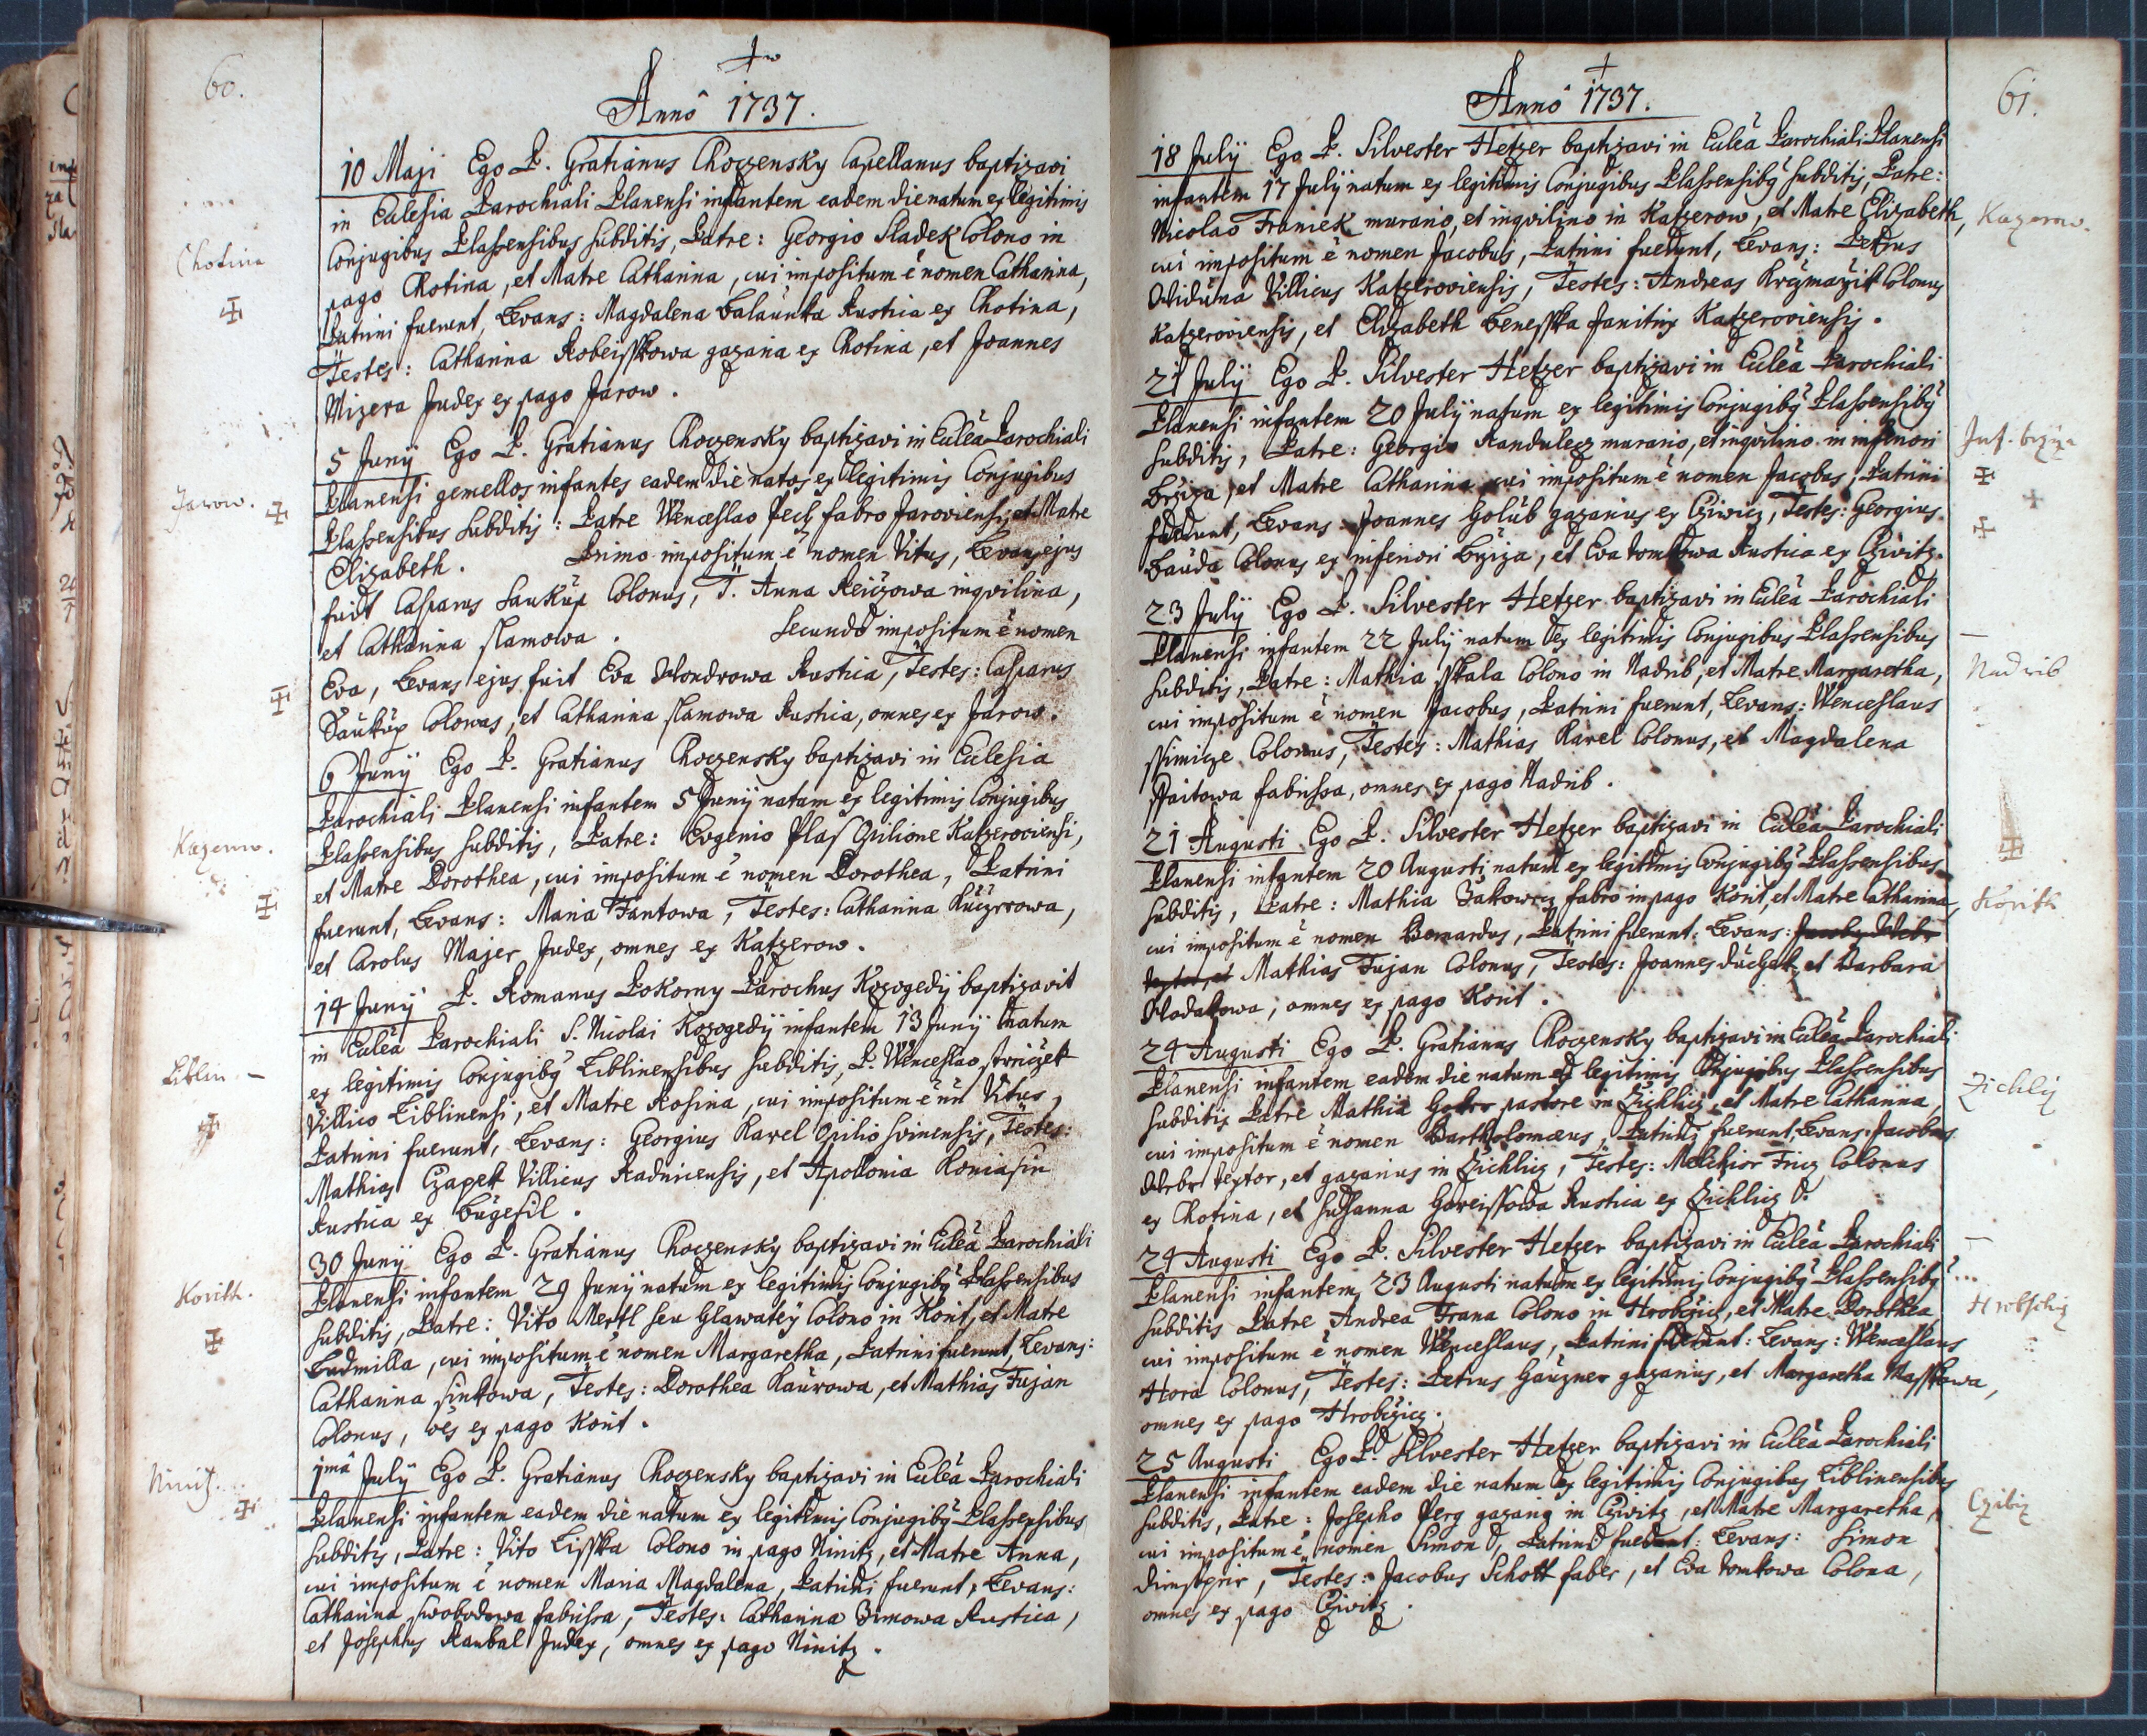 60.
Anno 1737.
10 Maji Ego P. Gratianus Choczensky Capellanus baptizavi
in Ecclesia Parochiali Planensi infantem eadem die natum ex legitimis
Conjugibus Plassensibus subditis, Patre: Georgio Sladek Colono in
Chotina
pago Chotina, et Matre Catharina, cui impositum ē nomen Catharina,
Patrini fuerunt, Levans: Magdalena Balaunka Rustica ex Chotina,
Testes: Catharina Kobeisskowa gazaria ex Chotina, et Joannes
Mizera Judex ex pago Jarow.
5 Junij Ego P. Gratianus Choczensky baptizavi in Ecclēa Parochiali
Jarow.
Planensi gemellos infantes eadem die natos ex legitimis Conjugibus
Plassensibus subditis: Patre Wenceslao Pech fabro Jaroviensi, et Matre
Elizabeth. Primo impositum ē nomen Vitus, Levans ejus
fuit Casparus Saukup Colonus, T. Anna inqvilina,
et Catharina slamowa. Secundo impositum ē nomen
Eva, Levans ejus fuit Eva Wondrowa Rustica, Testes: Casparus
Saukup Colonus, et Catharina slamowa Rustica, omnes ex Jarow.
6 Junij Ego P. Gratianus Choczensky baptizavi in Ecclesia
Parochiali Planensi infantem 5 Junij natam ex legitimis Conjugibus
Kazerow.
Plassensibus subditis, Patre: Evgenio Plass Opilione Katzeroviensi,
et Matre Dorothea, cui impositum ē nomen Dorothea, Patrini
fuerunt, Levans: Maria Fantowa, Testes: Catharina
et Carolus Majer Judex, omnes ex Katzerow.
14 Junij P. Romanus Pokorny Parochus Kozogedij baptizavit
in Ecclēa Parochiali S. Nicolai Kozogedij infantem 13 Junij natum
Liblin.
ex legitimis Conjugibg Liblinensibus subditis, P. Wenceslao
Villico Liblinensi, et Matre Rosina, cui impositum ē nn Vitus,
Patrini fuerunt, Levans: Georgius Karel Opilio Testes:
Mathias Czapek Villicus Radnicensis, et Apollonia
Rustica ex Bugesil.
30 Junij Ego P. Gratianus Choczensky baptizavi in Ecclēa Parochiali
Korith.
Planensi infantem 29 Junij natum ex legitimis Conjugibg Plassensibus
subditis, Patre: Vito Mertl seu Glawatey Colono in Korit, et Matre
Ludmilla, cui impositum ē nomen Margaretha, Patrini fuerunt, Levans:
Catharina sinkowa, Testes: Dorothea Kaurowa, et Mathias Fujan
Colonus, oēs ex pago Korit.
1mâ Julij Ego P. Gratianus Choczensky baptizavi in Ecclēa Parochiali
Ninitz.
Planensi infantem eadem die natum ex legitimis Conjugibg Plassensibus
subditis, Patre: Vito Lisska Colono in pago Ninitz, et Matre Anna,
cui impositum ē nomen Maria Magdalena, Patrini fuerunt, Levans:
Catharina swobodowa fabrissa, Testes: Catharina Zimowa Rustica,
et Josephus Raubal Judex, omnes ex pago Ninitz.
61.
Anno 1737.
18 Julij Ego P. Silvester Hetzer baptizavi in Ecclēa Parochiali Planensi
infantem 17 Julij natum ex legitimis Conjugibus Plassensibg subditis, Patre:
Nicolao Franiek murario, et inqvilino in Katzerow, et Matre Elizabeth,
Kazerow.
cui impositum ē nomen Jacobus, Patrini fuerunt, Levans: Petrus
Widuna Villicus Katzeroviensis, Testes: Andreas Colonus
Katzeroviensis, et Elizabeth Benesska Janitrix Katzeroviensis.
21 Julij Ego P. Silvester Hetzer baptizavi in Ecclēa Parochiali
Planensi infantem 20 Julij natum ex legitimis Conjugibg Plassensibg
Inf. brziza
subditis, Patre: Georgio Randulecz murario, et inqvilino in inferiori
Brziza, et Matre Catharina cui impositum ē nomen Jacobus, Patrini
fuerunt, Levans: Joannes Golub gazarius ex Cziwicz, Testes: Georgius
Bauda Colonus ex inferiori Brziza, et Eva tomkowa Rustica ex Cziwitz.
23 Julij Ego P. Silvester Hetzer baptizavi in Ecclēa Parochiali
Planensi infantem 22 Julij natum ex legitimis Conjugibus Plassensibus
Nadrib
subditis, Patre: Mathia skala Colono in Nadrib, et Matre Margaretha,
cui impositum ē nomen Jacobus, Patrini fuerunt, Levans: Wenceslaus
ssimicze Colonus, Testes: Mathias Karel Colonus, et Magdalena
ffaitowa fabrissa, omnes ex pago Nadrib.
21 Augusti Ego P. Silvester Hetzer baptizavi in Ecclēa Parochiali
Planensi infantem 20 Augusti natum ex legitimis Conjugibg Plassensibus
Korith
subditis, Patre: Mathia Zakowecz fabro in pago Korit, et Matre Catharina,
cui impositum ē nomen Bernardus, Patrini fuerunt: Levans: Jacobus Webr
textor, et Mathias Fujan Colonus, Testes: Joannes duchek et Barbara
Wodakowa, omnes ex pago Korit.
24 Augusti Ego P. Gratianus Choczensky baptizavi in Ecclēa Parochiali
Planensi infantem eadem die natum ex legitimis Conjugibus Plassensibus
Zichliz
subditis Patre Mathia pastore in Zichlicz, et Matre Catharina,
cui impositum ē nomen Bartholomaeus, Patrini fuerunt, Levans: Jacobus
Webr textor, et gazarius in Zichlicz, Testes: Melchior Fricz Colonus
ex Chotina, et Susanna Rustica ex Zichlicz.
24 Augusti Ego P. Silvester Hetzer baptizavi in Ecclēa Parochiali
Planensi infantem, 23 Augusti natum ex legitimis Conjugibg Plassensibg
Hrobschiz
subditis Patre Andrea Frana Colono in Hrobczicz, et Matre Dorothea,
cui impositum ē nomen Wenceslaus, Patrini fuerunt: Levans: Wenceslaus
Hora Colonus, Testes: Petrus Gauzner gazarius, et Margaretha Masskowa,
omnes ex pago Hrobczicz.
25 Augusti Ego P. Silvester Hetzer baptizavi in Ecclēa Parochiali
Planensi infantem eadem die natum ex legitimis Conjugibus Liblinensibus
Czibiz
subditis, Patre: Josepho Perg gazario in Cziwitz, et Matre Margaretha,
cui impositum ē nomen Simon, Patrini fuerunt: Levans: Simon
Testes: Jacobus Schott faber, et Eva tomkowa Colona,
omnes ex pago Cziwitz.